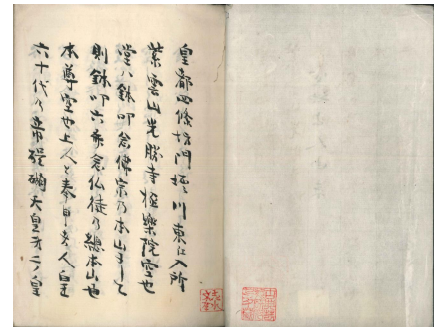 皇都四條坊門堀川東江入所
紫雲山光勝寺極樂院空也
堂ハ鉢叩念佛宗乃本山ニして
則鉢叩六斎念仏徒乃總本山也
本尊空也上人と奉申者人皇
六十代乃帝醍醐天皇才二ノ皇